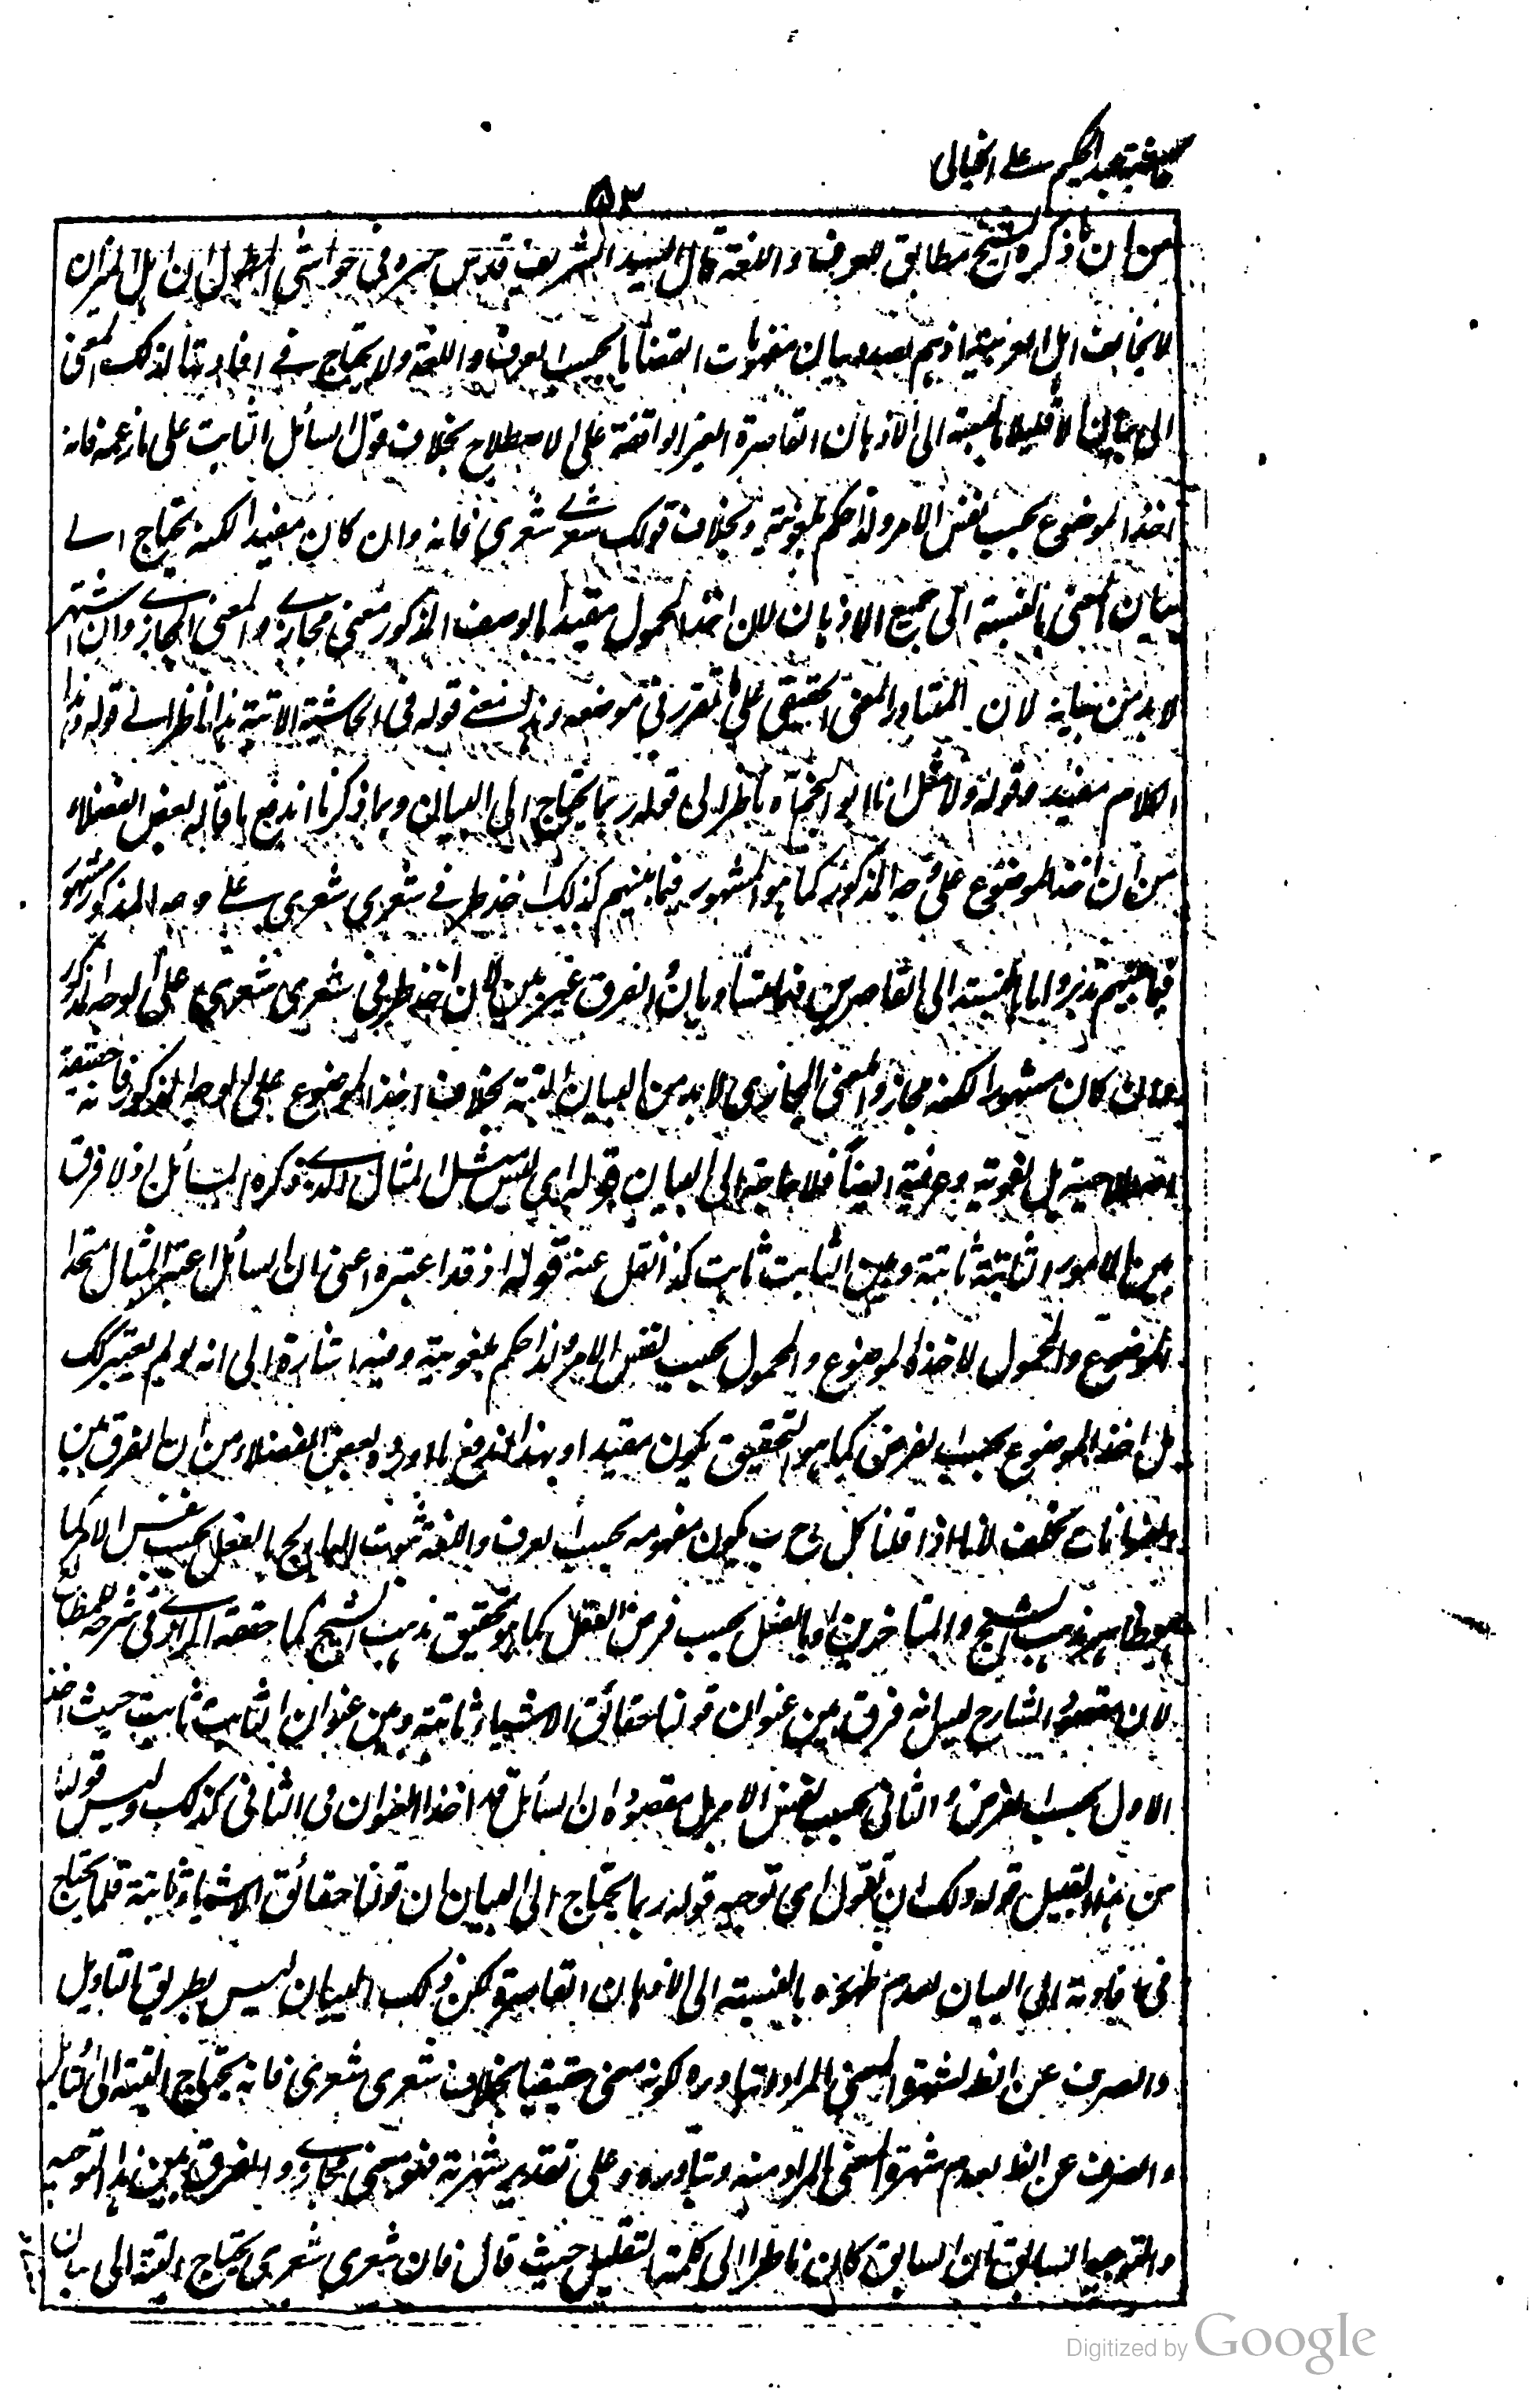 حاشية عبد الحكيم على الخيالى
٥٣
من ان ما ذكره الشيخ مطابق للعرف واللغة قال السيد الشريف قدس سره فى حواشى المطول ان اهل الميزان
لا يخالف اهل العربية اذ هم بصدد بيان مفهومات القضايا بحسب العرف واللغة ولا يحتاج فى افادتها لذلك المعنى
الى بيان الا قليلا بالنسبة الى الاذهان القاصرة الغير الواقفة على الاصطلاح بخلاف قول السائل الثابت على ما زعمه فانه
اخذ الموضوع بحسب نفس الامر ولذا حكم بلغويته وبخلاف قولك شعرى شعرى فانه وان كان مفيدا لكنه يحتاج الى
بيان المعنى بالنسبة الى جميع الاذهان لان اخذ المحمول مقيدا بالوصف المذكور معنى مجازى والمعنى المجازى وان اشتهر
لا بد من بيانه لان المتبادر المعنى الحقيقى على ما تقرر فى موضعه وهذا معنى قوله فى الحاشية الاتية هذا ناظر الى قوله وهذا
الكلام مفيد وقوله ولا مثل انا ابو النجم آه ناظر الى قوله ربما يحتاج الى البيان وبما ذكرنا اندفع ما قاله بعض الفضلاء
من ان اخذ الموضوع على وجه المذكور كما هو المشهور فيما بينهم كذلك اخذ طرفى شعرى شعرى على وجه المذكور مشهور
فيما بينهم تدبروا اما بالنسبة الى القاصرين فهما متساويان فالفرق غير بين لان اخذ طرفى شعرى شعرى على الوجه المذكور
وان كان مشهورا لكنه مجاز والمعنى المجازى لا بد من البيان البتة بخلاف اخذ الموضوع على الوجه المذكور فانه حقيقة
اصطلاحية بل لغوية وعرفية ايضا فلا حاجة الى البيان قوله اى ليس مثل المثال الذى ذكره السائل اذ لا فرق
بين الامور الثابتة ثابتة وبين الثابت ثابت كذا نقل عنه قوله اذ قد اعتبره اعنى ان السائل اعتبر المثال متحدا
الموضوع والمحمول لاخذه الموضوع والمحمول بحسب نفس الامر ولذا حكم بلغويته وفيه اشارة الى انه لو لم يعتبر كذلك
بل اخذ الموضوع بحسب الفرض كما هو التحقيق يكون مفيدا وبهذا اندفع ما اورده بعض الفضلاء من ان الفرق بين
العنوانات تكلف لانا اذا قلنا كل ج ب يكون مفهومه بحسب العرف واللغة ثبوت الباء لج بالفعل بحسب نفس الامر كما
هو ظاهر مذهب الشيخ والمتاخرين او بالفعل بحسب فرض العقل كما هو تحقيق مذهب الشيخ كما حققه الرازى فى شرحه للمطالع
لان مقصود الشارح ليس انه فرق بين عنوان قولنا حقائق الاشياء ثابتة وبين عنوان الثابت ثابت حيث اخذ
الاول بحسب الفرض والثانى بحسب نفس الامر بل مقصوده ان السائل قد اخذ العنوان فى الثانى كذلك وليس قولنا
من هذا القبيل قوله ولك ان تقول اى توجيه قوله ربما يحتاج الى البيان ان قولنا حقائق الاشياء ثابتة قلما يحتاج
فى افادته الى البيان لعدم ظهوره بالنسبة الى الاذهان القاصرة لكن ذلك البيان ليس بطريق التاويل
والصرف عن الظ لشهرة المعنى المراد وتبادره لكونه معنى حقيقيا بخلاف شعرى شعرى فانه يحتاج البتة الى التاويل
والصرف عن الظ لعدم شهرة المعنى المراد منه وتبادره وعلى تقدير شهرته فهو معنى مجازى والفرق بين هذا التوجيه
والتوجيه السابق ان السابق كان ناظرا الى كلمة التقليل حيث قال فان شعرى شعرى يحتاج البتة الى بيان
Digitized by Google